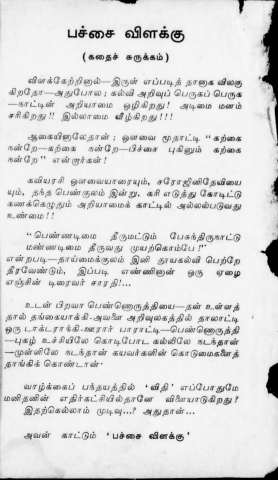 பச்சை விளக்கு
(கதைச் சுருக்கம்)
விளக்கேற்றினால்—இருள் எப்படித் தானாக விலகு
கிறதோ—அதுபோல; கல்வி அறிவுப் பெருகப் பெருக
—நாட்டின் அறியாமை ஒழிகிறது! அடிமை மனம்
சரிகிறது!! இல்லாமை வீழ்கிறது!!!
ஆகையினாலேதான்; ஔவை மூதாட்டி "கற்கை
நன்றே—கற்கை நன்றே—பிச்சை புகினும் கற்கை
நன்றே" என்றார்கள்!
கவியரசி ஔவையாரையும், சரோஜினிதேவியை
யும், தந்த பெண்குலம் இன்று, கரி எடுத்து கோடிட்டு
கணக்கெழுதும் அறியாமைக் காட்டில் அல்லல்படுவது
உண்மை!!
"பெண்ணடிமை தீருமட்டும் பேசுந்திருநாட்டு
மண்ணடிமை தீருவது முயற்கொம்பே!"
என்றபடி—தாய்மைக்குலம் இனி தூயகல்வி பெற்றே
தீரவேண்டும், இப்படி எண்ணினான் ஒரு ஏழை
எஞ்சின் டிரைவர் சாரதி!...
உடன் பிறவா பெண்ணொருத்தியை—தன் உள்ளத்
தால் தங்கையாக்கி-அவளை அறிவுலகத்தில் தாலாட்டி
ஒரு டாக்டராக்கி-ஊரார் பாராட்டி—பெண்ணொருத்தி
—புகழ் உச்சியிலே கொடிபோட கல்லிலே நடந்தான்
—முள்ளிலே நடந்தான் கயவர்களின் கொடுமைகளைத்
தாங்கிக் கொண்டான்.
வாழ்க்கைப் பந்தயத்தில் 'விதி' எப்போதுமே
மனிதனின் எதிர்கட்சியில்தானே விளையாடுகிறது?
இதற்கெல்லாம் முடிவு...? அதுதான்...
அவன் காட்டும் 'பச்சை விளக்கு'